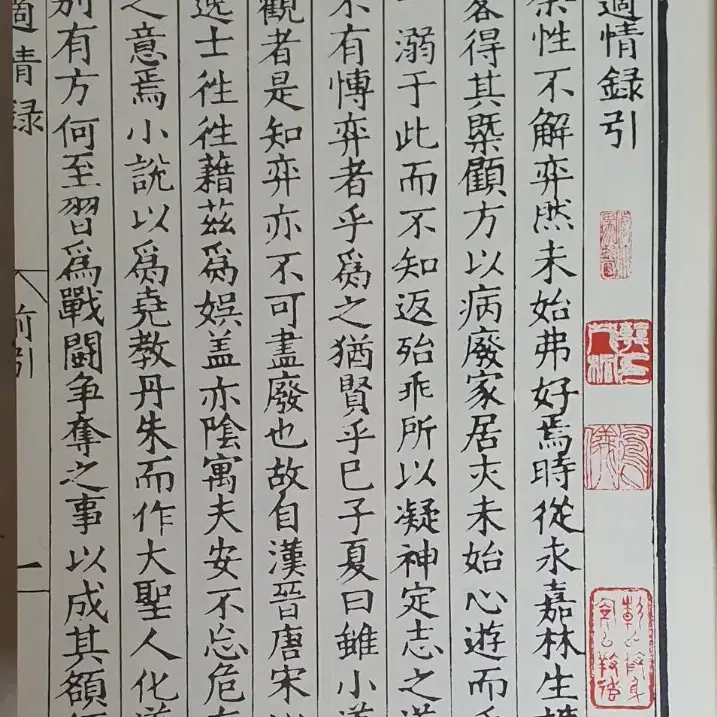 適情錄引
余性不解弈然未始弗好焉時從永嘉林生
畧得其槩顧方以病廢家居夫未始心遊而
一溺于此而不知返殆乖所以凝神定志之
不有慱弈者乎爲之猶賢乎巳子夏曰雖小道
觀者是知弈亦不可盡廢也故自漢晉唐宋
逸士徃徃藉茲爲娛盖亦陰寓夫安不忘危
之意焉小說以爲堯教丹朱而作大聖人化
别有方何至習爲戰鬭争奪之事以成其頟
適情錄
前引
一